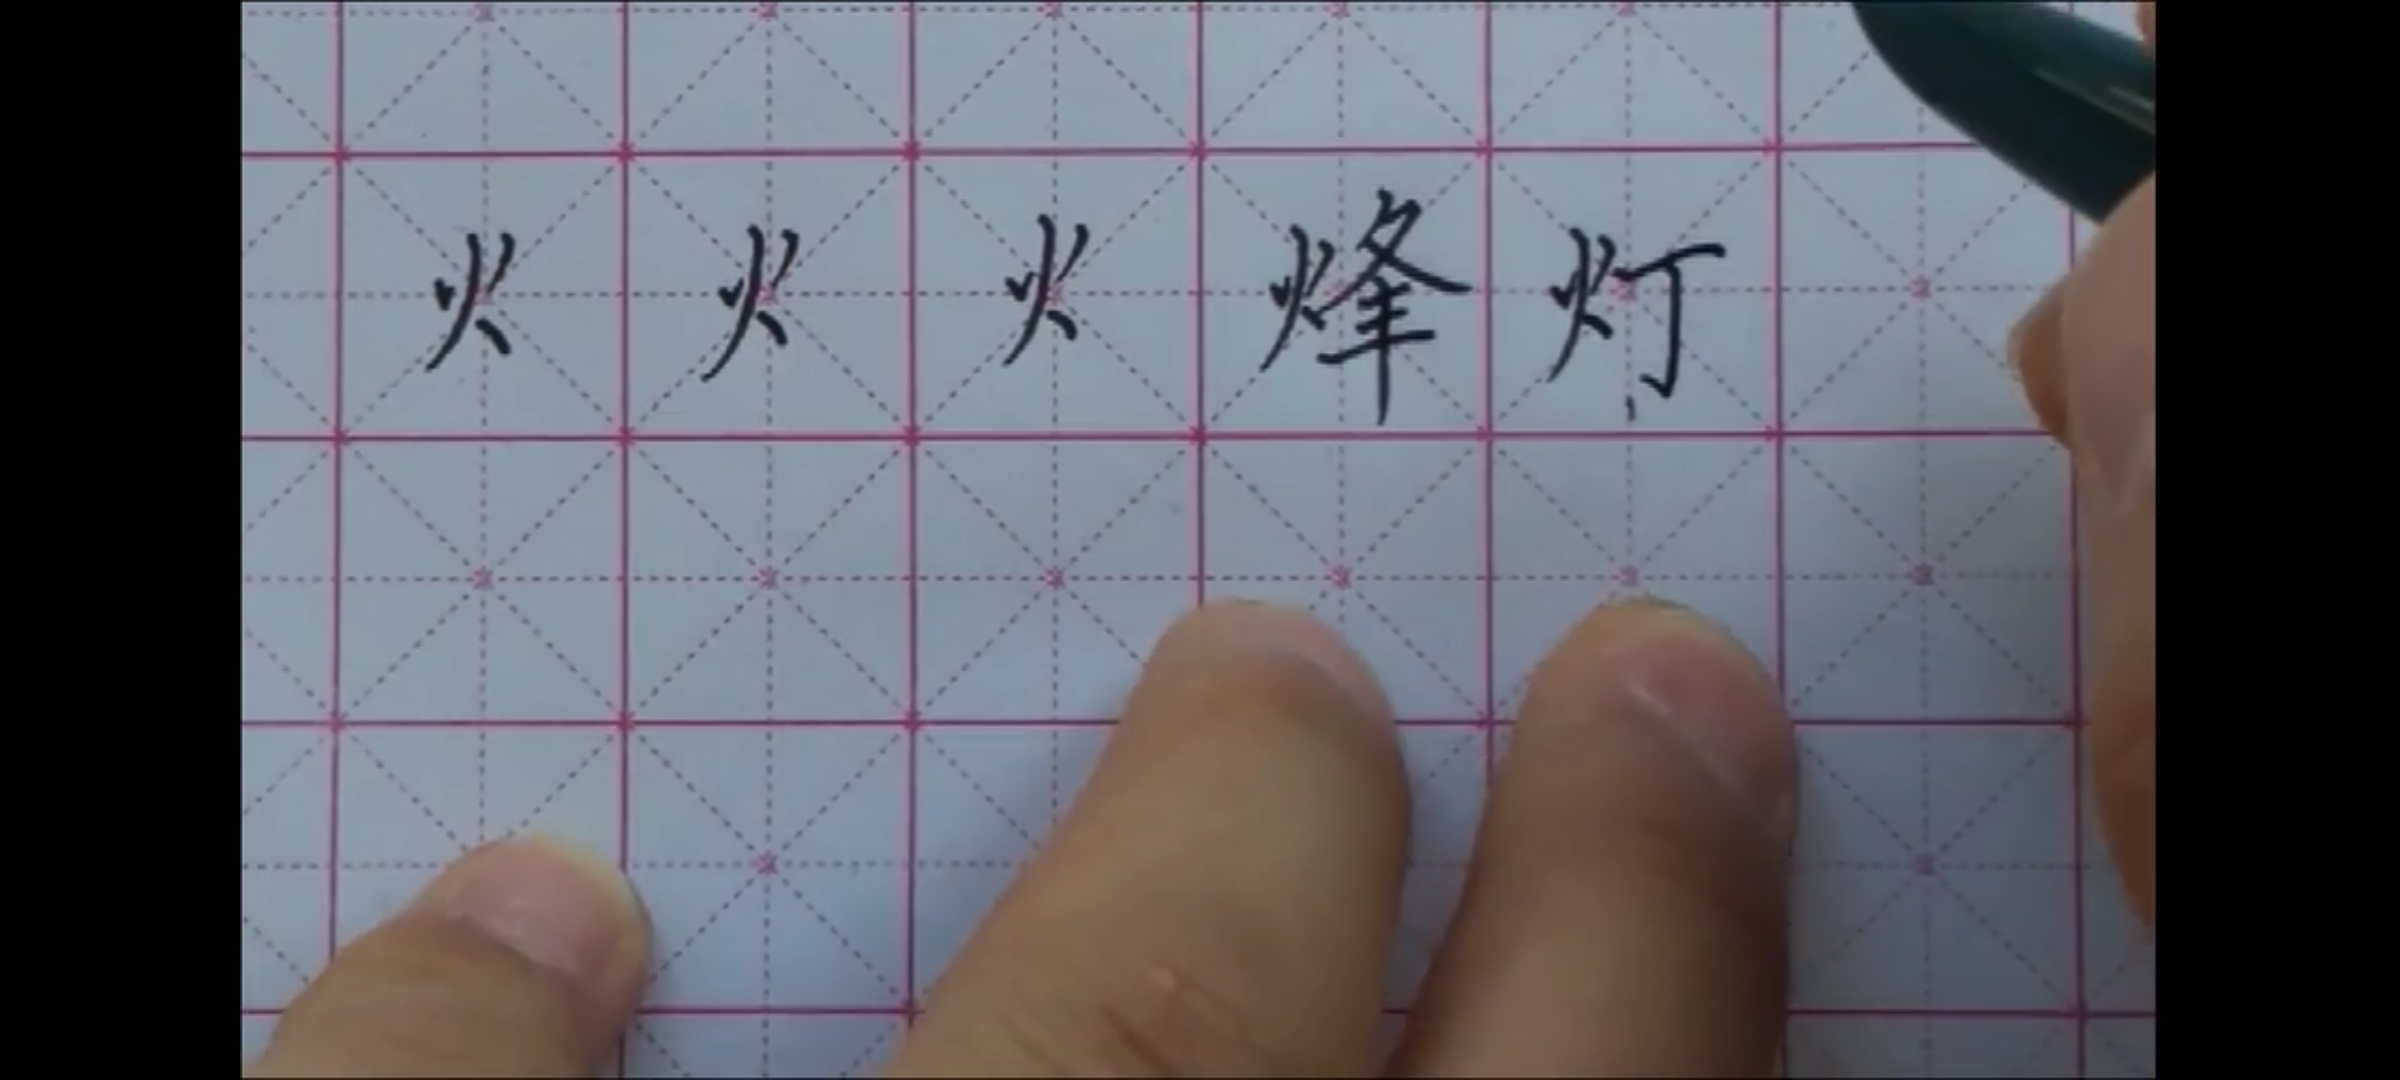 火 火 火 烽 灯